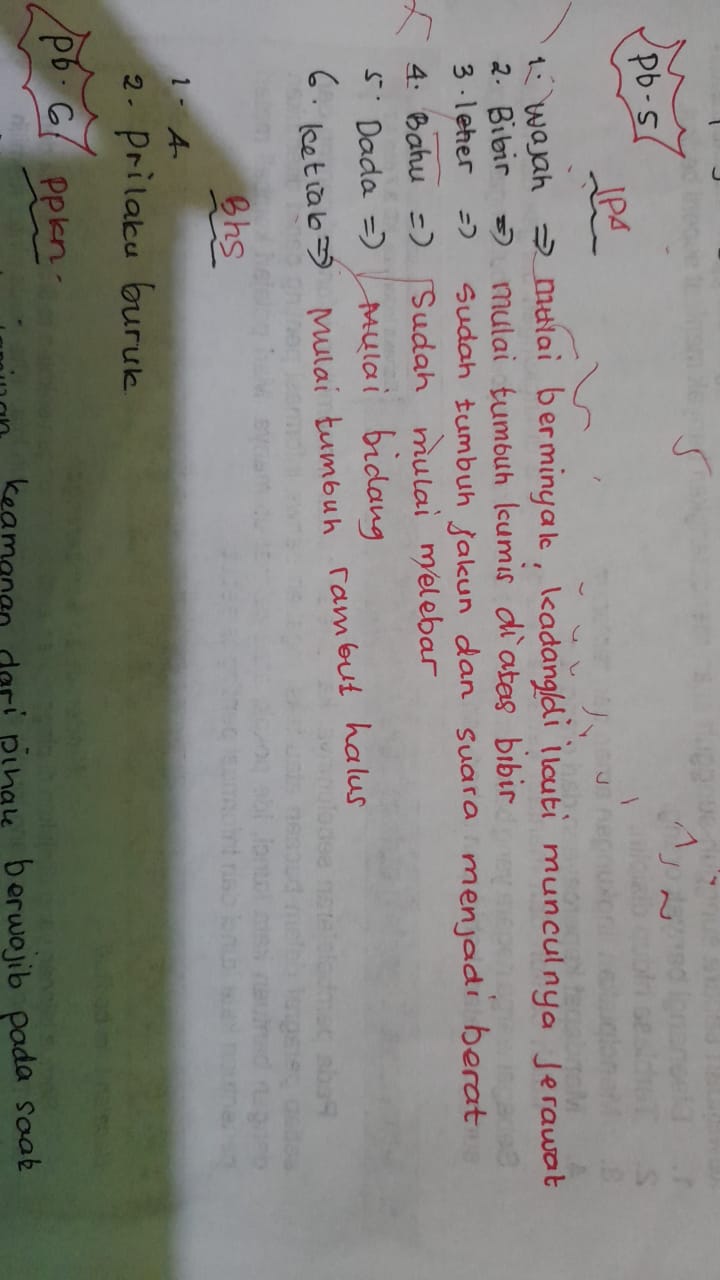 Pb.5
IPA
1. Wajah => mulai berminyak, kadang diikuti munculnya jerawat
2. Bibir => mulai tumbuh kumis diatas bibir
3. leher => sudah tumbuh jakun dan suara menjadi berat
4. Bahu => Sudah mulai melebar
5. Dada => Mulai bidang
6. ketiab => Mulai tumbuh rambut halus
Bhs
1. A
2. prilaku buruk
Pb.6
PPkn.
keamanan dari pihak berwajib pada saat